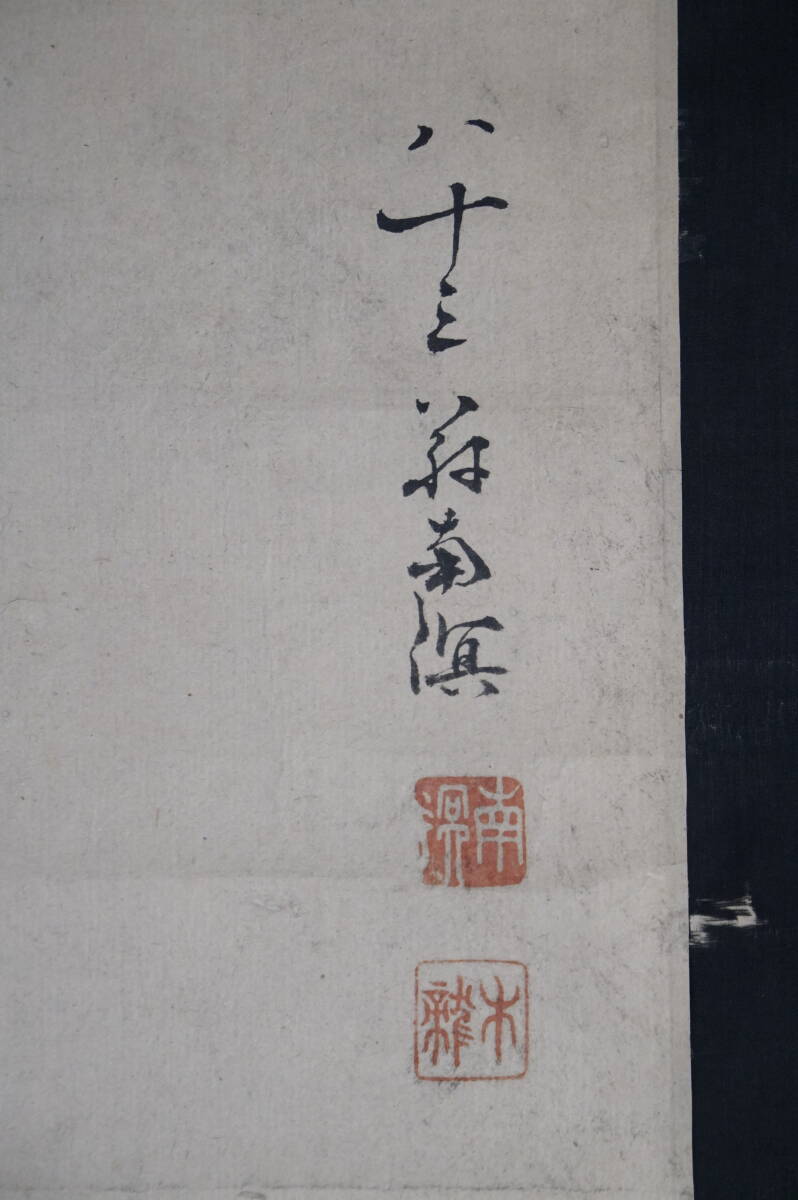 八十三翁南溟
南溟
木龍